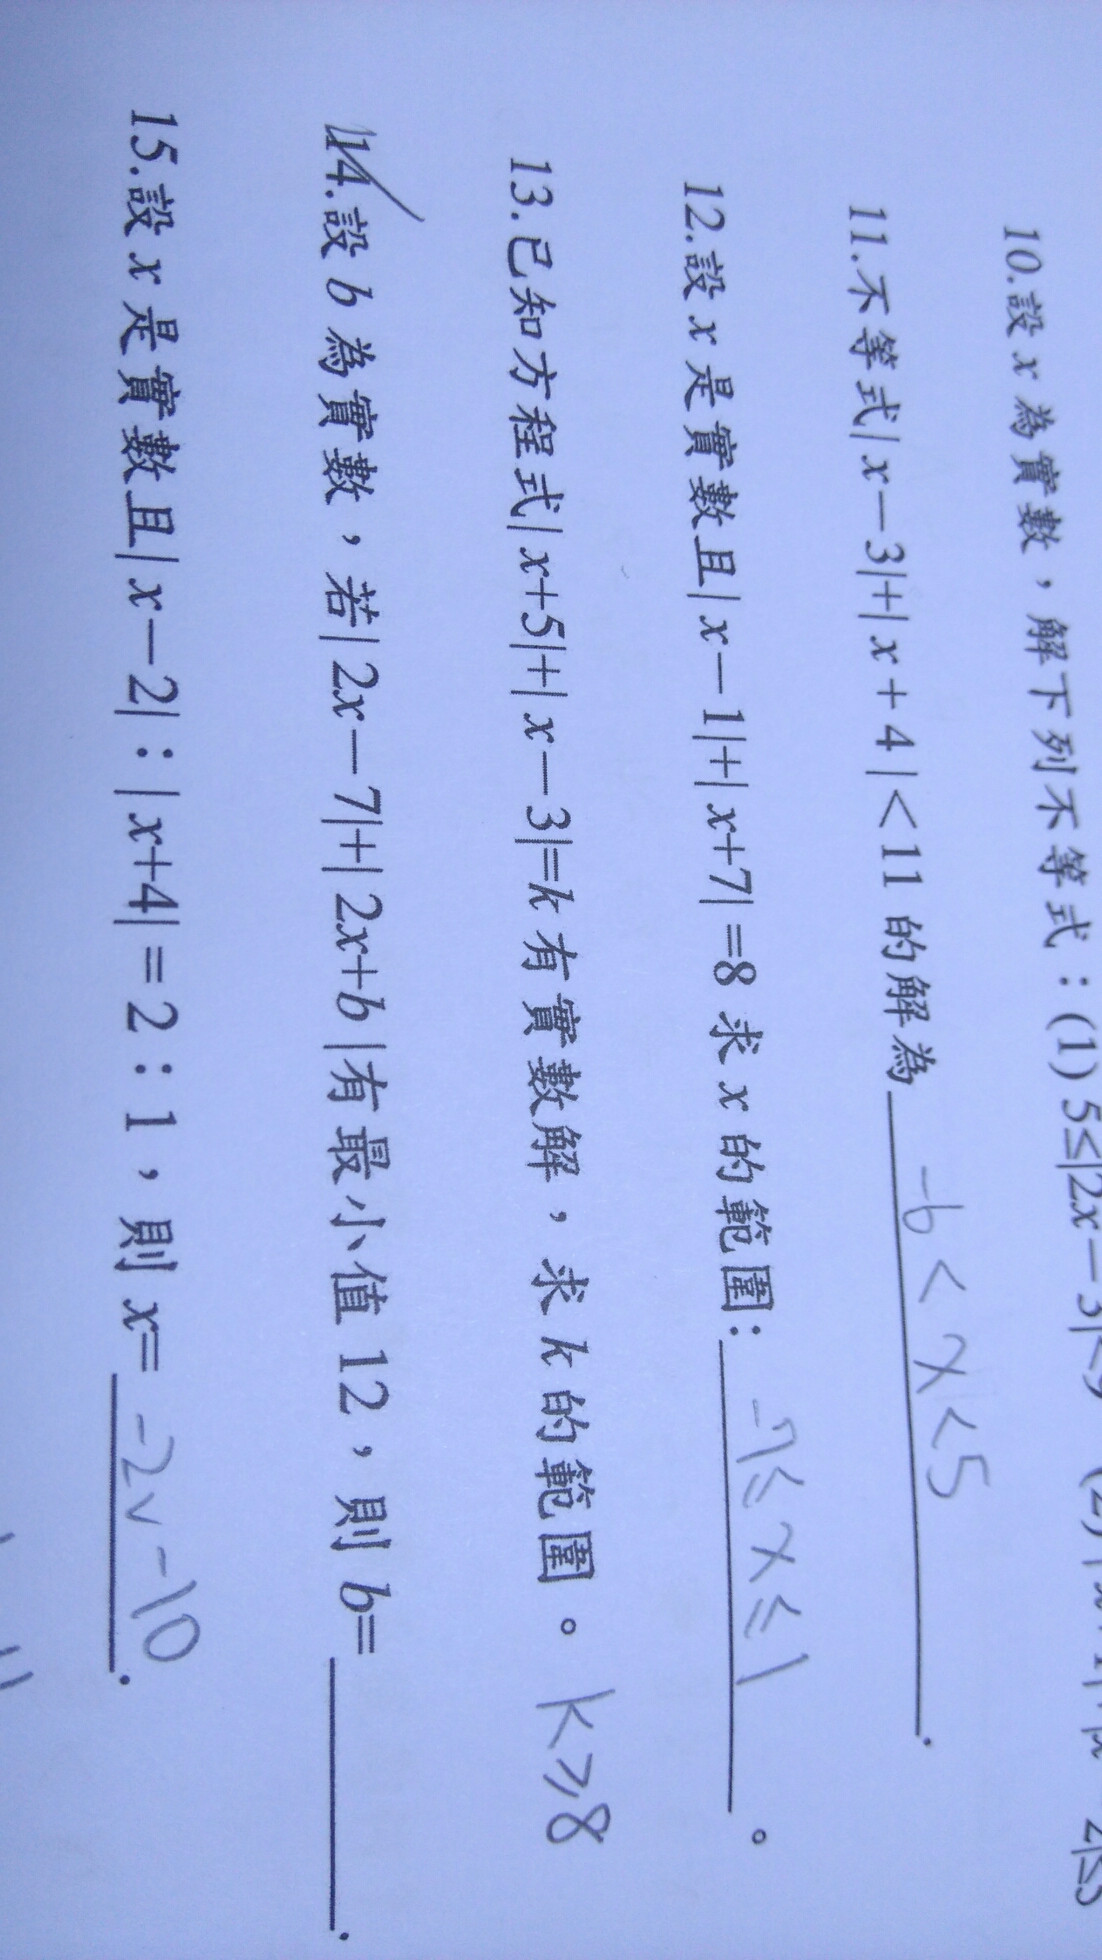 10.設 x 為實數，解下列不等式：(1) 5≤|2x－3|<9 (2)
11.不等式|x－3|+|x+4|<11 的解為 -6<x<5.
12.設 x 是實數且|x－1|+|x+7|=8 求 x 的範圍: -7≤x≤1。
13.已知方程式|x+5|+|x－3|=k 有實數解，求 k 的範圍。k≥8
14.設 b 為實數，若|2x－7|+|2x+b|有最小值 12，則 b=.
15.設 x 是實數且|x－2|：|x+4|=2：1，則 x= -2v-10.